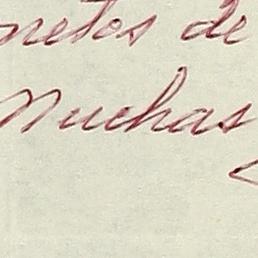 netos de
Muchas